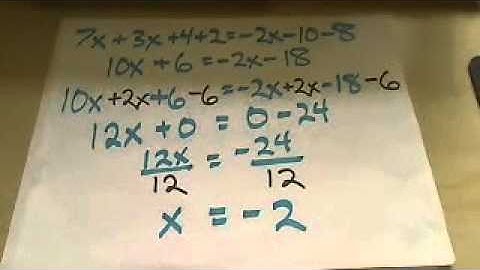 7x+3x+4+2=-2x-10-8
10x+6=-2x-18
10x+2x+6-6=-2x+2x-18-6
12x+0=0-24
12x/12=-24/12
x=-2